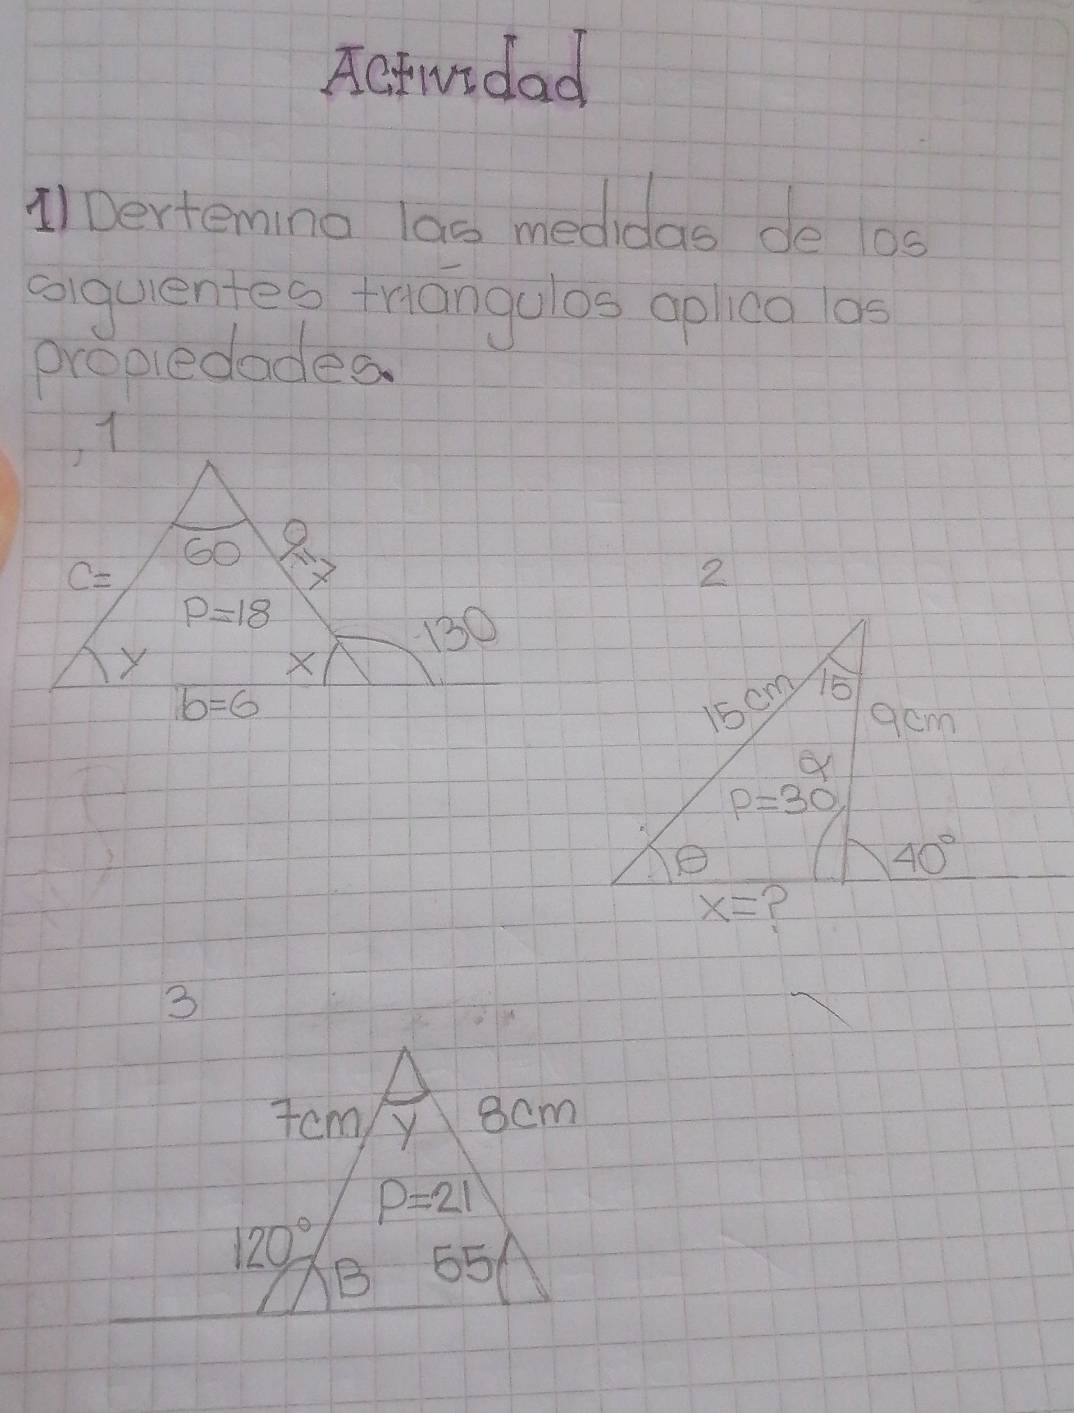 Actividad
1) Dertemina las medidas de los
siguientes triángulos aplica las
propiedades.
1
60
a=7
C=
P=18
130
y
x
b=6
2
15cm
15
9cm
α
P=30
θ
40°
x=?
3
7cm
y
8cm
P=21
120°
B
55